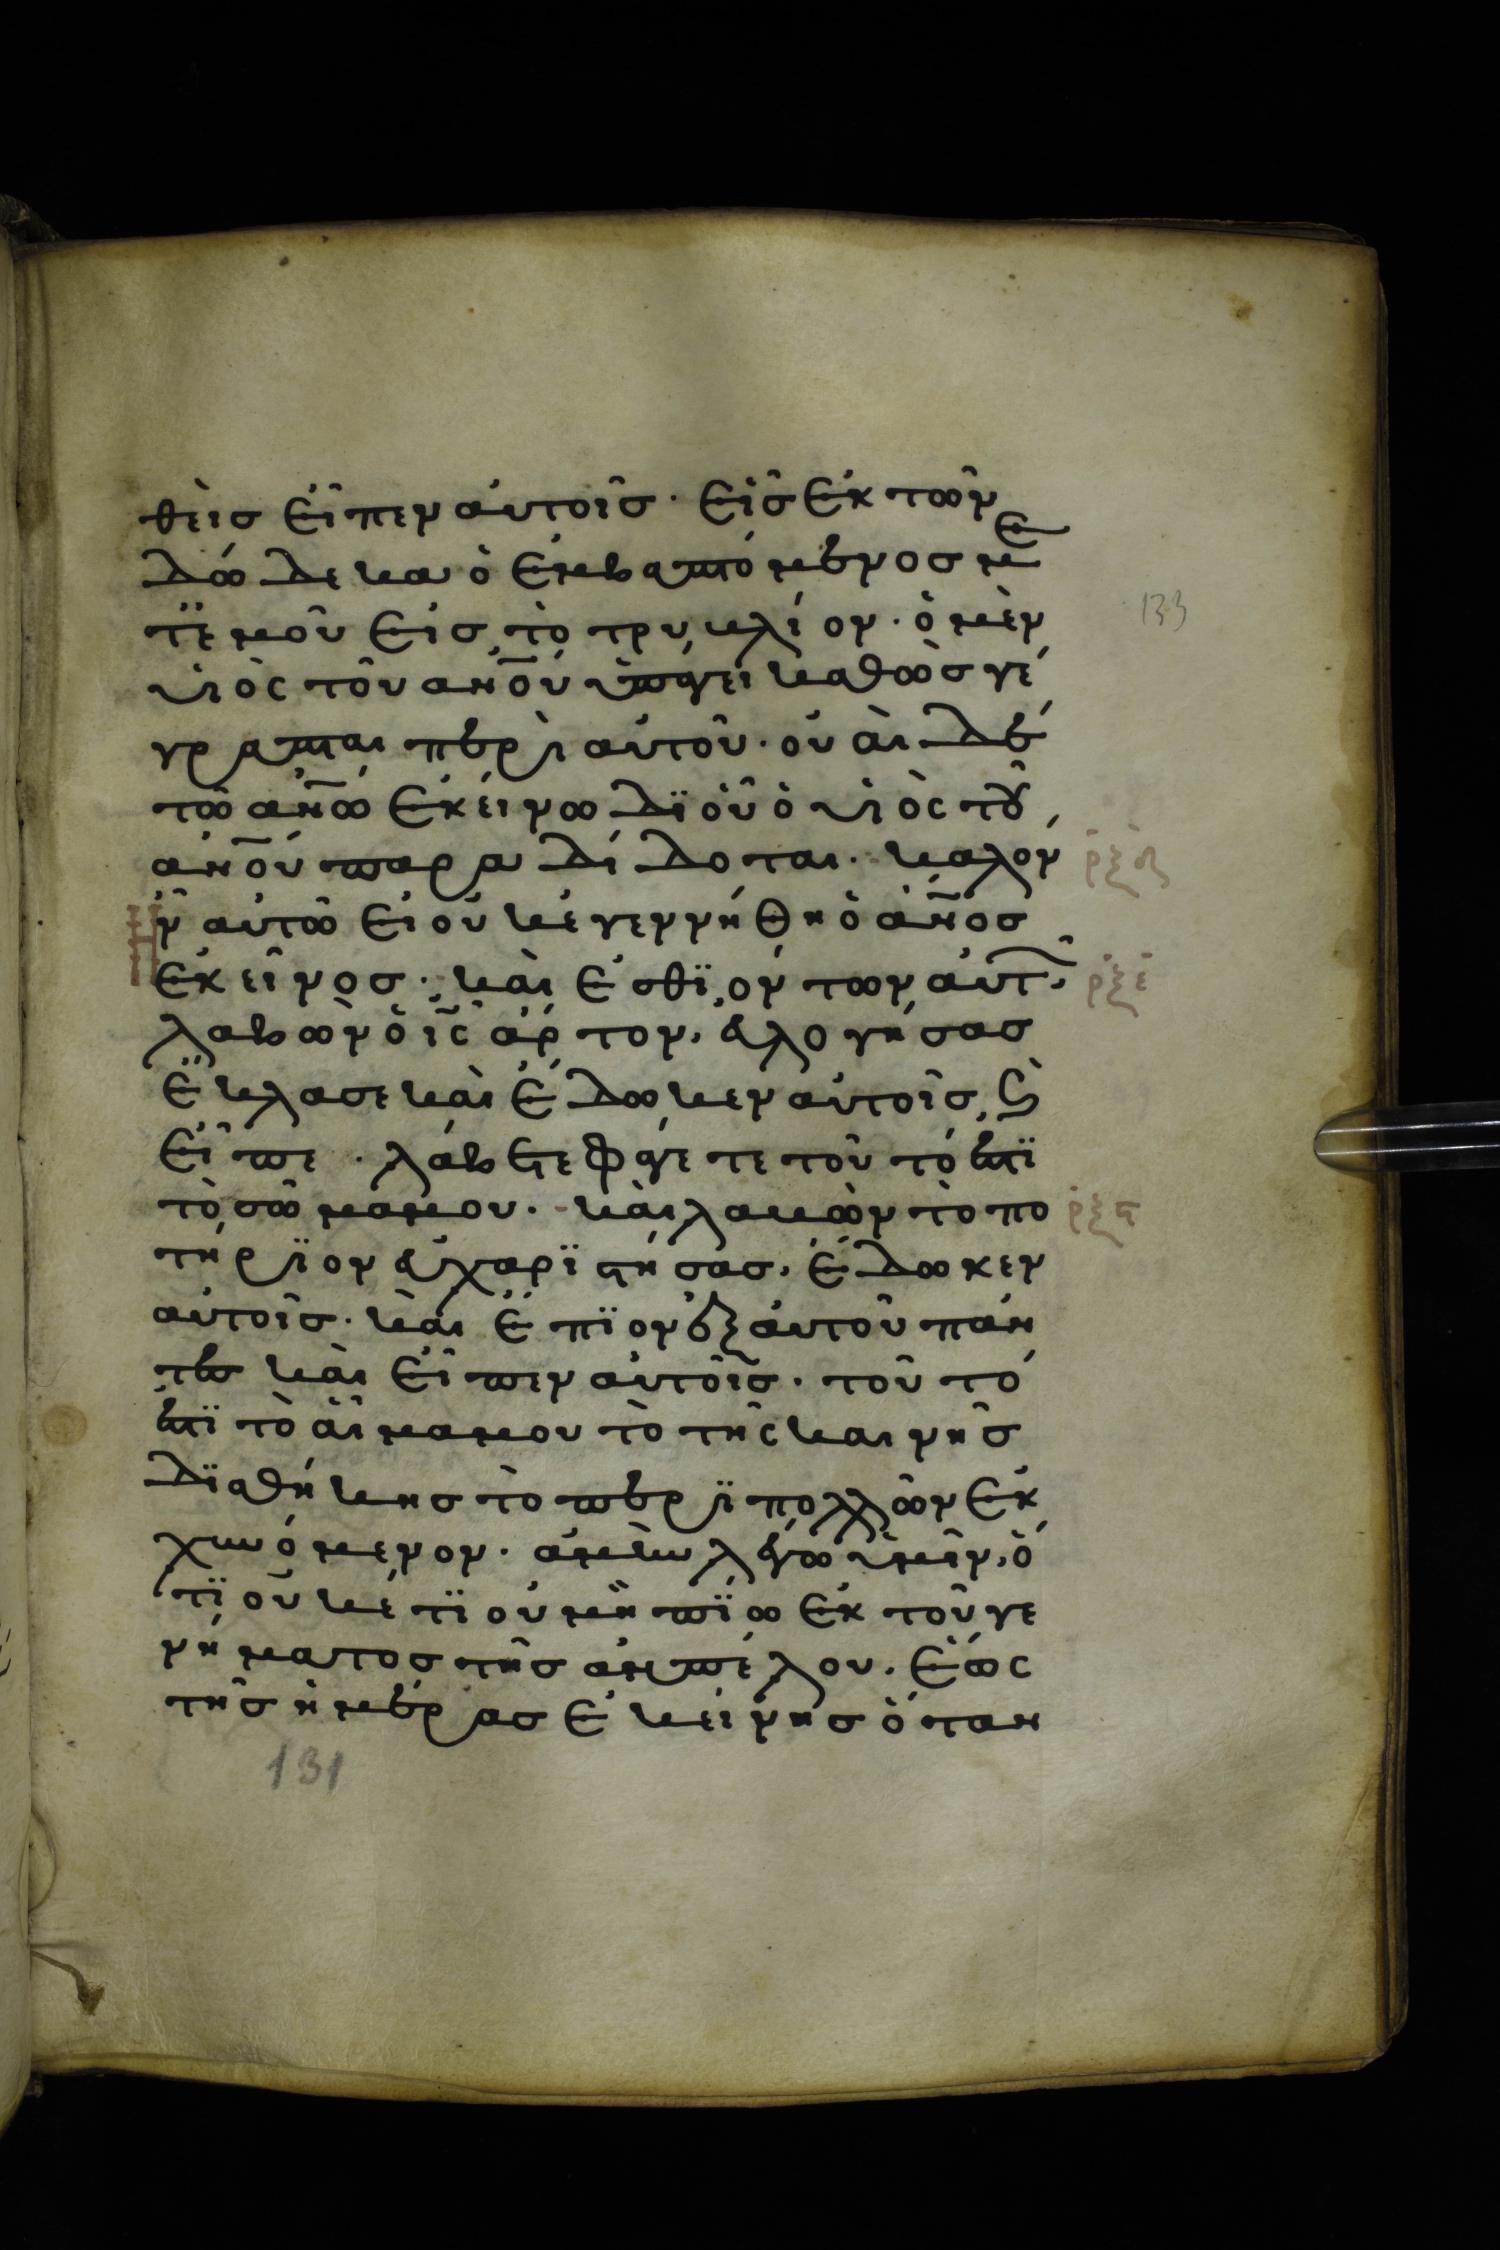 θεὶς εἶπεν αὐτοῖς· εἷς ἐκ τῶν
δώδεκα ὁ ἐμβαπτόμενος με
τ' ἐμοῦ εἰς τὸ τρυβλίον· ὁ μὲν
υἱὸς τοῦ ἀν̅ου ὑπάγει καθὼς γέ
γραπται περὶ αὐτοῦ· οὐαὶ δὲ
τῶ ἀν̅ω ἐκείνω δϊ οὗ ὁ υἱὸς τοῦ
ἀν̅ου παραδίδοται· καλὸν
ρξδ
ἦν αὐτῶ εἰ οὐκ ἐγεννήθη ὁ ἄν̅ος
ἐκεῖνος· καὶ ἐσθϊόντων αὐτῶν,
ρξε
λαβὼν ὁ ι̅ς ἄρτον, εὐλογήσας
ἔκλασε καὶ ἔδωκεν αὐτοῖς, καὶ
εἶπε· λάβετε φάγετε τοῦτό ἐστϊ
τὸ σῶμά μου· καὶ λαβὼν τὸ πο
ρξϛ
τήρϊον εὐχαρϊστήσας, ἔδωκεν
αὐτοῖς· καὶ ἔπϊον ἐξ αὐτοῦ πάν
τες καὶ εἶπεν αὐτοῖς· τοῦτό
ἐστϊ τὸ αἷμά μου τὸ τῆς καινῆς
δϊαθήκης τὸ περὶ πολλῶν ἐκ
χυνόμενον· ἀμὴν λέγω ὑμῖν, ὅ
τϊ οὐκέτϊ οὐ μὴ πίω ἐκ τοῦ γε
νήματος τῆς ἀμπέλου, ἕως
τῆς ἡμέρας ἐκείνης ὅταν
133
131